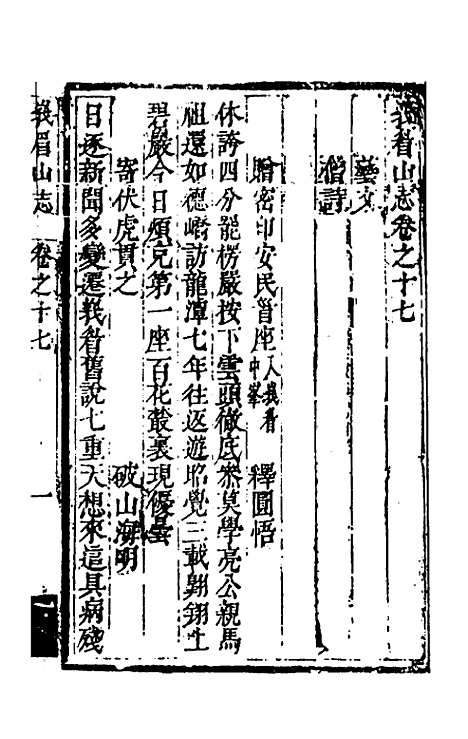 峩眉山志卷之十七
藝文
僧詩
贈密印安民首座入峩眉中峯 釋圜悟
休誇四分罷楞嚴按下雲頭徹底叅莫學亮公親馬
祖還如德嶠訪龍潭七年往返遊昭覺三載翺翔上
碧巖今日煩充第一座百花叢裏現優曇
寄伏虎貫之 破山海明
日逐新聞多變遷峩眉舊說七重天想來這具病殘
峩眉山志 卷之十七 一